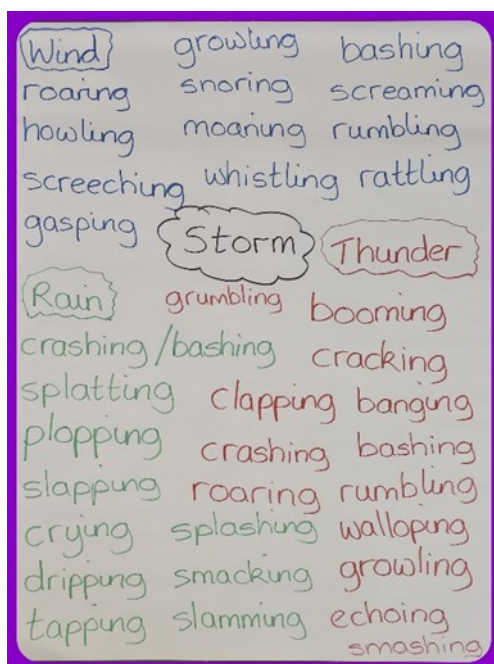 Wind growling bashing
roaring snoring screaming
howling moaning rumbling
screeching whistling rattling
gasping Storm Thunder
Rain grumbling booming
crashing/bashing cracking
splatting clapping banging
plopping crashing bashing
slapping roaring rumbling
crying splashing walloping
dripping smacking growling
tapping slamming echoing
smashing